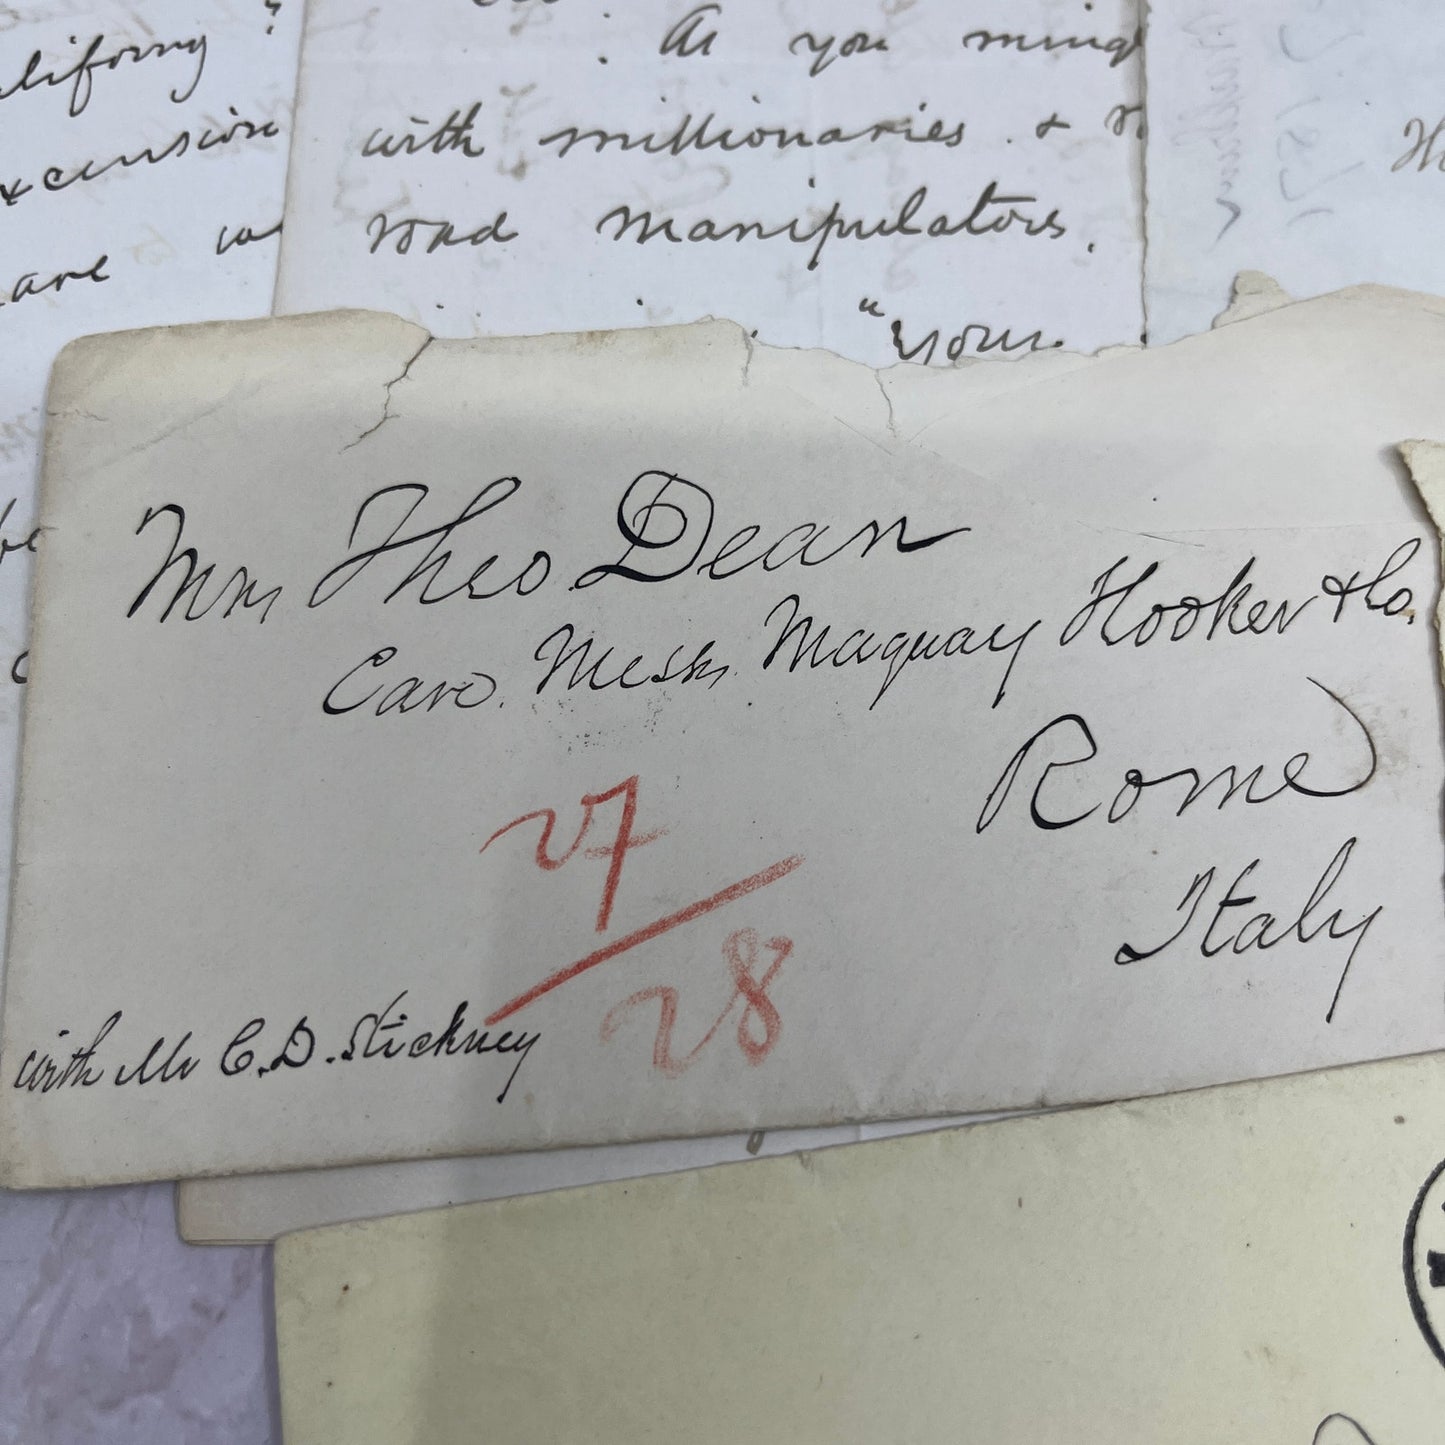 ?
excursion
are
As you
with millionaries . &
road manipulators.
"your
Mrs Theo. Dean
Care. Messrs. Maquay Hooker & Co.
Rome
Italy
27
28
with Mr C. D. Stickney